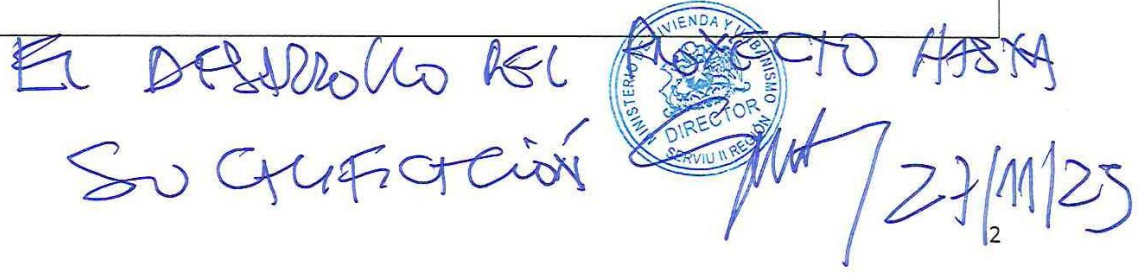 EL DESARROLLO DEL PROYECTO HASTA
SU CALIFICACIÓN
MINISTERIO DE VIVIENDA Y URBANISMO
DIRECTOR
SERVIU II REGIÓN
27/11/25
2